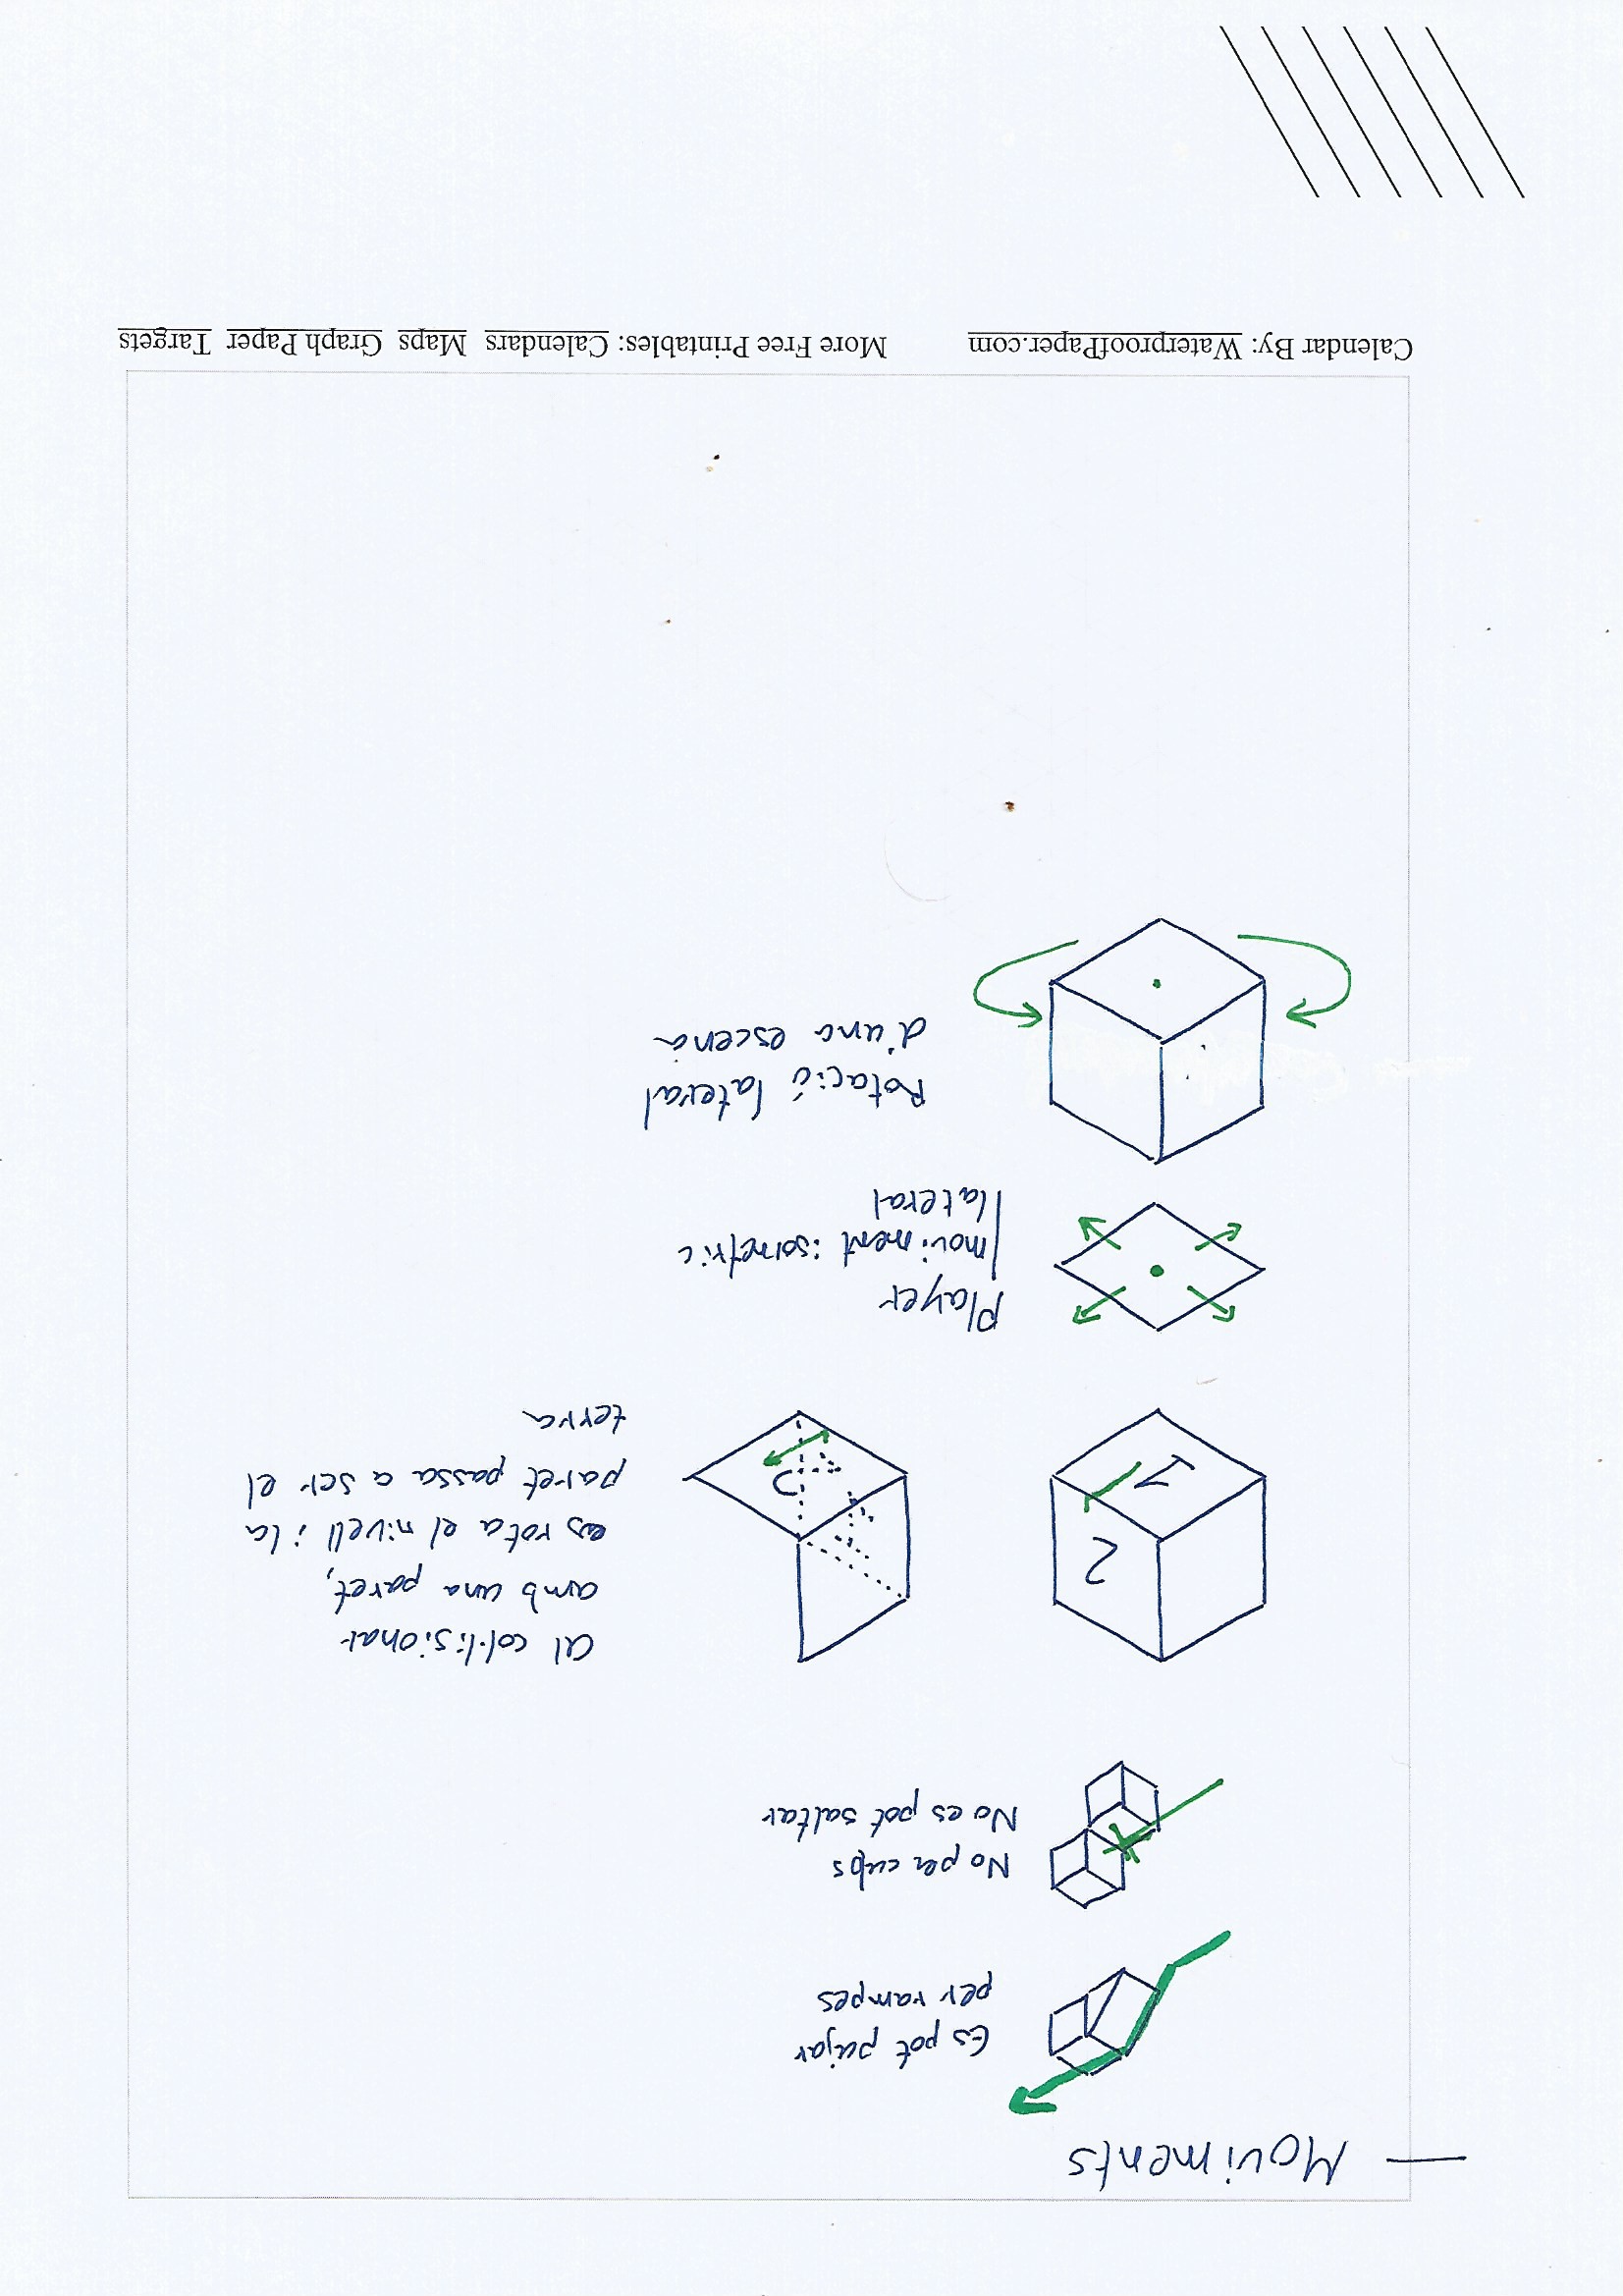 — Moviments
Es pot pujar
per rampes
No per cubs
No es pot saltar
2
1
2
Al col·lisionar
amb una paret,
es rota el nivell i la
paret passa a ser el
terra
Player
moviment isometric
lateral
Rotació lateral
d'una escena
Calendar By: WaterproofPaper.com More Free Printables: Calendars Maps Graph Paper Targets